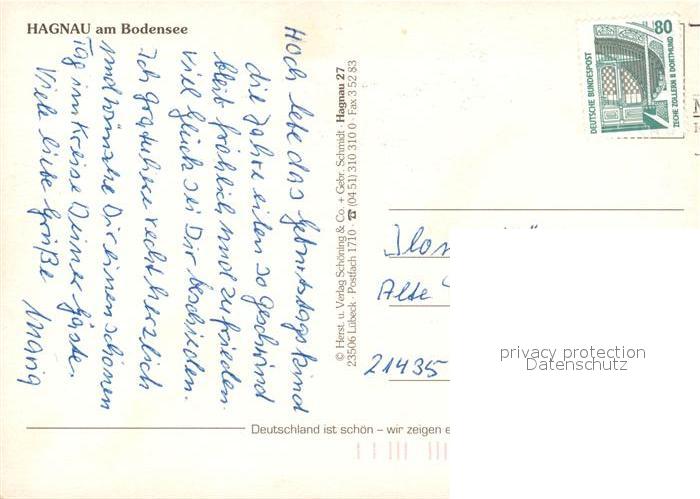 HAGNAU am Bodensee
Hoch lebe das Geburtstagskind
die Jahre eilen so geschwind
bleib fröhlich und zufrieden.
viel Glück sei Dir beschieden.
Ich gratuliere recht herzlich
und wünsche Dir einen schönen
Tag im Kreise Deiner Gäste.
Viele liebe Grüße Maria
© Herst. u. Verlag Schöning & Co. + Gebr. Schmidt · Hagnau 27
23506 Lübeck · Postfach 1710 · ☎ (04 51) 310 310 0 · Fax 3 52 83
80
DEUTSCHE BUNDESPOST
ZECHE ZOLLERN II DORTMUND
Alte
21435
privacy protection
Datenschutz
Deutschland ist schön – wir zeigen e